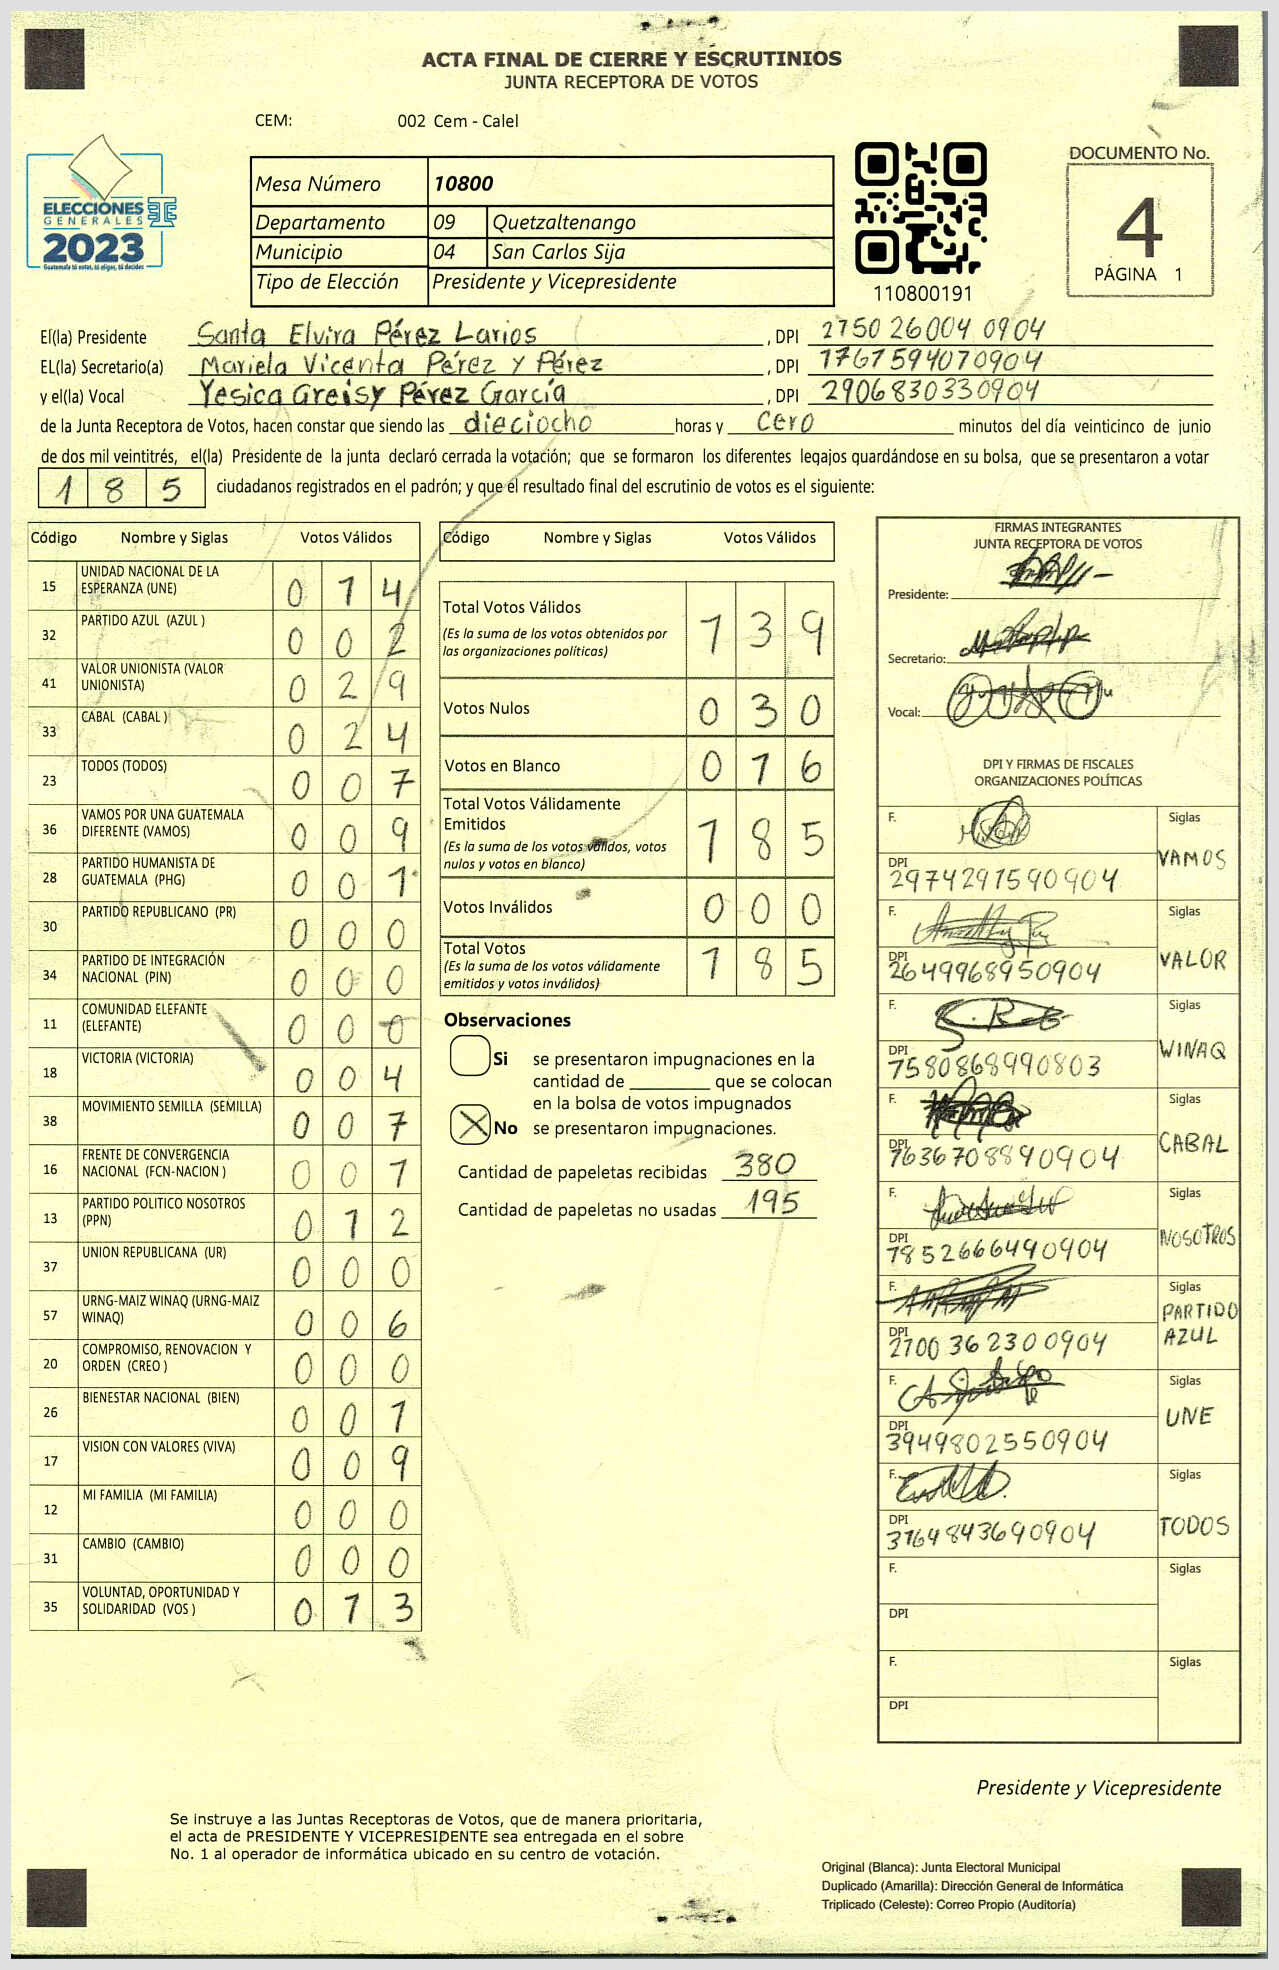 ACTA FINAL DE CIERRE Y ESCRUTINIOS
JUNTA RECEPTORA DE VOTOS
CEM: 002 Cem - Calel
ELECCIONES
GENERALES
2023
Guatemala tú votas, tú eliges, tú decides
Mesa Número 10800
Departamento 09 Quetzaltenango
Municipio 04 San Carlos Sija
Tipo de Elección Presidente y Vicepresidente
110800191
DOCUMENTO No.
4
PÁGINA 1
El(la) Presidente Santa Elvira Pérez Larios, DPI 2750 26004 0904
EL(la) Secretario(a) Mariela Vicenta Pérez y Pérez, DPI 1767594070904
y el(la) Vocal Yesica Greisy Pérez García, DPI 2906830330904
de la Junta Receptora de Votos, hacen constar que siendo las dieciocho horas y cero minutos del día veinticinco de junio
de dos mil veintitrés, el(la) Presidente de la junta declaró cerrada la votación; que se formaron los diferentes legajos guardándose en su bolsa, que se presentaron a votar
185 ciudadanos registrados en el padrón; y que el resultado final del escrutinio de votos es el siguiente:
Código Nombre y Siglas Votos Válidos
15 UNIDAD NACIONAL DE LA ESPERANZA (UNE) 0 1 4
32 PARTIDO AZUL (AZUL ) 0 0 2
41 VALOR UNIONISTA (VALOR UNIONISTA) 0 2 9
33 CABAL (CABAL ) 0 2 4
23 TODOS (TODOS) 0 0 7
36 VAMOS POR UNA GUATEMALA DIFERENTE (VAMOS) 0 0 9
28 PARTIDO HUMANISTA DE GUATEMALA (PHG) 0 0 1
30 PARTIDO REPUBLICANO (PR) 0 0 0
34 PARTIDO DE INTEGRACIÓN NACIONAL (PIN) 0 0 0
11 COMUNIDAD ELEFANTE (ELEFANTE) 0 0 0
18 VICTORIA (VICTORIA) 0 0 4
38 MOVIMIENTO SEMILLA (SEMILLA) 0 0 7
16 FRENTE DE CONVERGENCIA NACIONAL (FCN-NACION ) 0 0 1
13 PARTIDO POLITICO NOSOTROS (PPN) 0 1 2
37 UNION REPUBLICANA (UR) 0 0 0
57 URNG-MAIZ WINAQ (URNG-MAIZ WINAQ) 0 0 6
20 COMPROMISO, RENOVACION Y ORDEN (CREO ) 0 0 0
26 BIENESTAR NACIONAL (BIEN) 0 0 1
17 VISION CON VALORES (VIVA) 0 0 9
12 MI FAMILIA (MI FAMILIA) 0 0 0
31 CAMBIO (CAMBIO) 0 0 0
35 VOLUNTAD, OPORTUNIDAD Y SOLIDARIDAD (VOS ) 0 1 3
Código Nombre y Siglas Votos Válidos
Total Votos Válidos 1 3 9
(Es la suma de los votos obtenidos por
las organizaciones políticas)
Votos Nulos 0 3 0
Votos en Blanco 0 1 6
Total Votos Válidamente
Emitidos 1 8 5
(Es la suma de los votos válidos, votos
nulos y votos en blanco)
Votos Inválidos 0 0 0
Total Votos 1 8 5
(Es la suma de los votos válidamente
emitidos y votos inválidos)
Observaciones
Si se presentaron impugnaciones en la
cantidad de ________ que se colocan
en la bolsa de votos impugnados
X No se presentaron impugnaciones.
Cantidad de papeletas recibidas 380
Cantidad de papeletas no usadas 195
FIRMAS INTEGRANTES
JUNTA RECEPTORA DE VOTOS
Presidente:
Secretario:
Vocal:
DPI Y FIRMAS DE FISCALES
ORGANIZACIONES POLÍTICAS
F. Siglas
VAMOS
DPI
2974291590904
F. Siglas
VALOR
DPI
2649968950904
F. Siglas
WINAQ
DPI
7580868990803
F. Siglas
CABAL
DPI
1636708890904
F. Siglas
NOSOTROS
DPI
7852666490904
F. Siglas
PARTIDO
AZUL
DPI
2700 36 2300904
F. Siglas
UNE
DPI
3949802550904
F. Siglas
TODOS
DPI
3164843690904
F. Siglas
DPI
F. Siglas
DPI
Presidente y Vicepresidente
Se instruye a las Juntas Receptoras de Votos, que de manera prioritaria,
el acta de PRESIDENTE Y VICEPRESIDENTE sea entregada en el sobre
No. 1 al operador de informática ubicado en su centro de votación.
Original (Blanca): Junta Electoral Municipal
Duplicado (Amarilla): Dirección General de Informática
Triplicado (Celeste): Correo Propio (Auditoría)